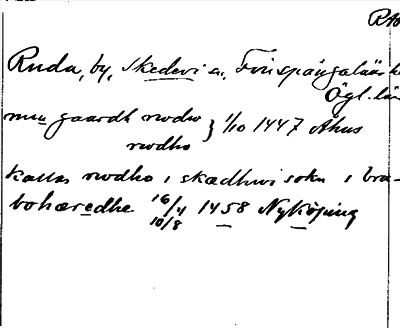 RAp
Ruda, by, Skedevi sn, Finspångaläns h
Ögl. län
min gaardh rwdho } 1/10 1447 Åhus
rwdho
kallas rwdho i skædhwi sokn i bra-
bohæredhe 16/4 1458 Nyköping
10/8